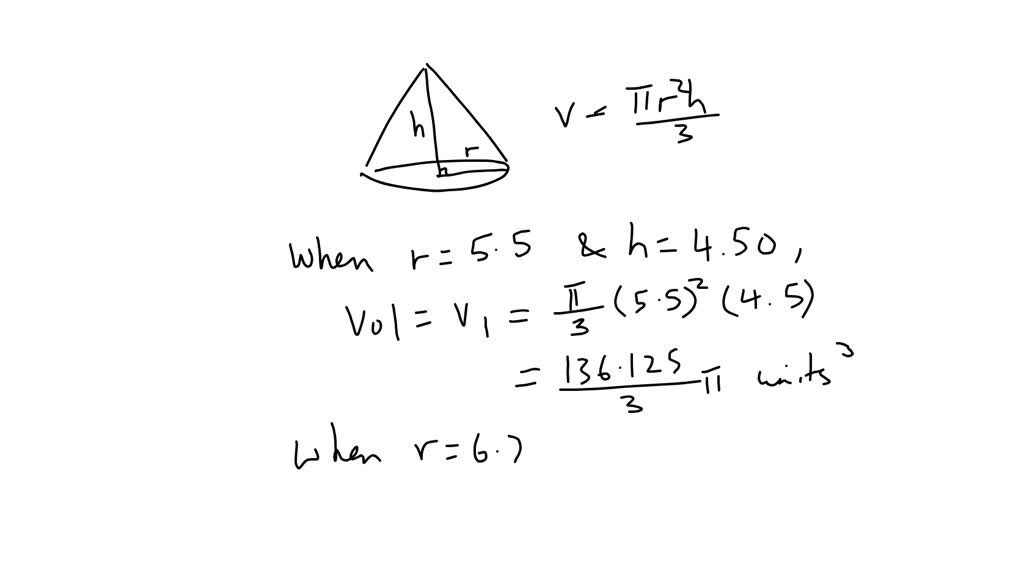 h
r
V = πr²h/3
When r = 5.5 & h = 4.50,
Vol = V₁ = π/3 (5.5)² (4.5)
= 136.125/3 π units³
When r = 6.7